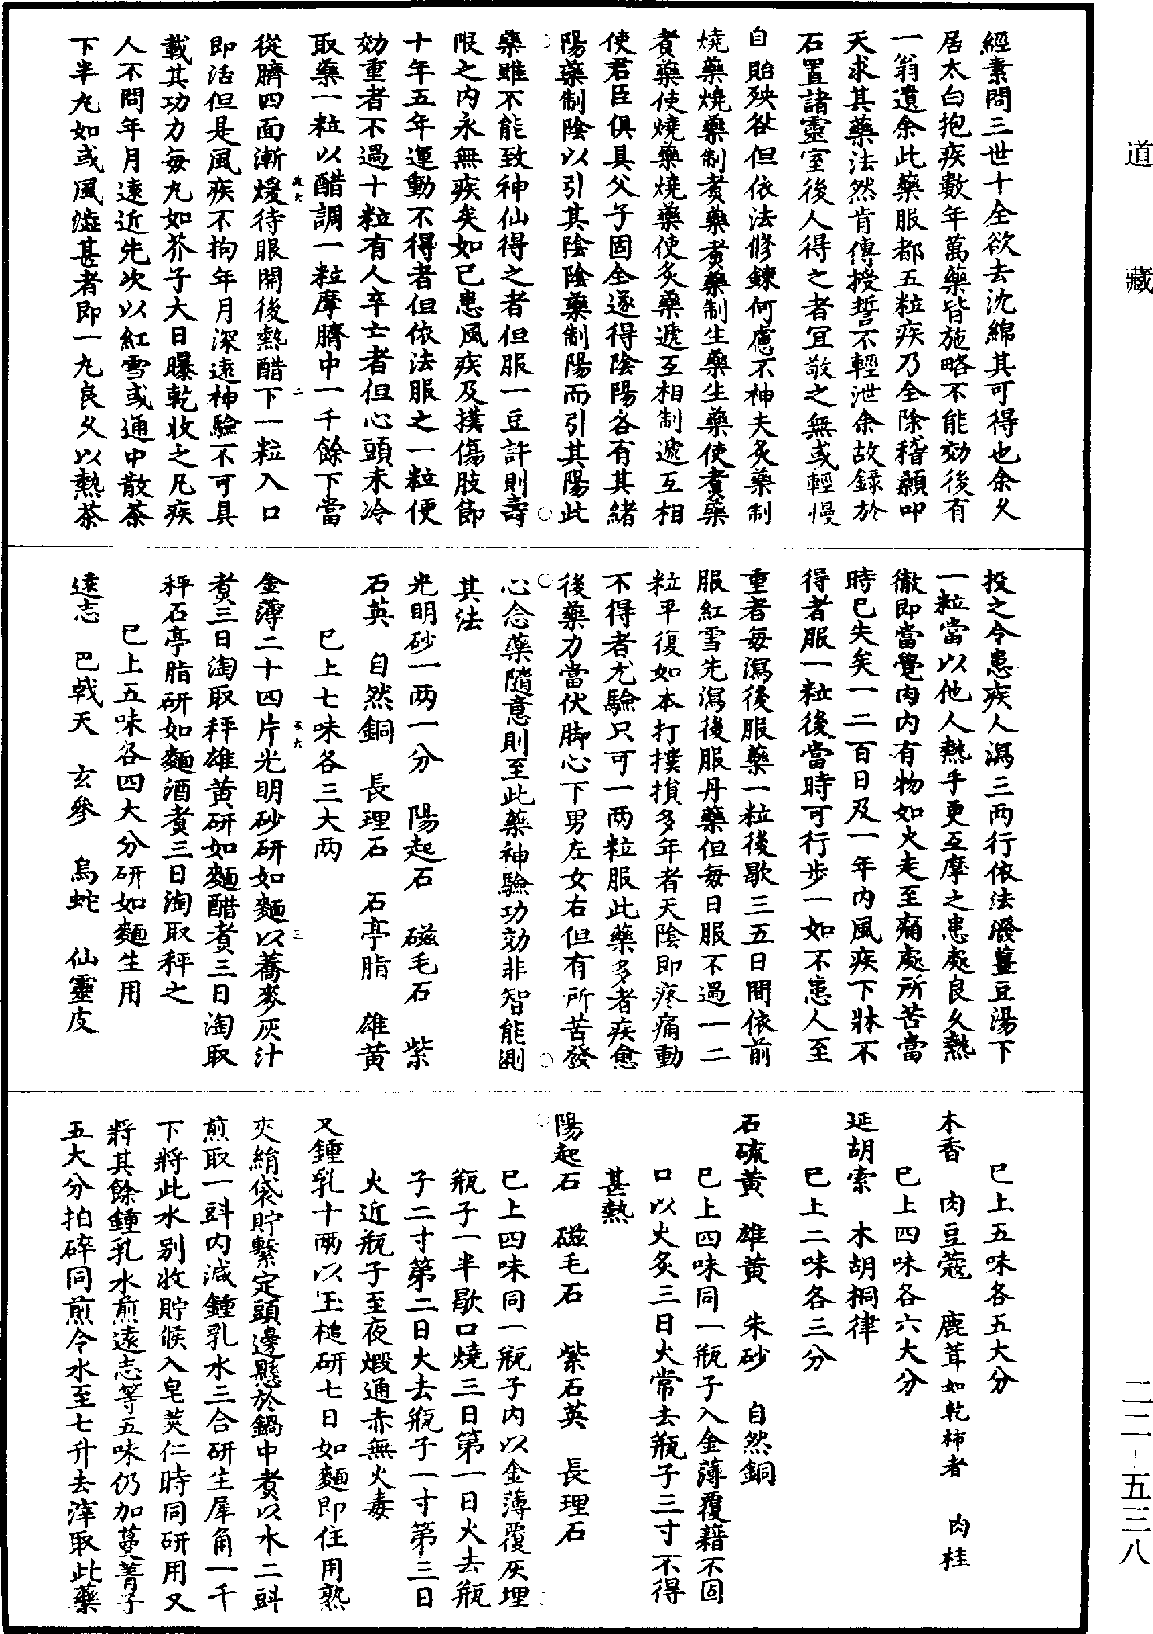 道藏
二二－五三八
經素問三世十全欲去沈綿其可得也余久
居太白抱疾數年萬藥皆施略不能効後有
一翁遺余此藥服都五粒疾乃全除稽顙叩
天求其藥法然肯傳授誓不輕泄余故録於
石置諸靈室後人得之者宜敬之無或輕慢
自貽殃咎但依法修鍊何慮不神夫炙藥制
燒藥燒藥制煮藥煮藥制生藥生藥使煮藥
煮藥使燒藥燒藥使炙藥遞互相制遞互相
使君臣俱具父子固全遂得陰陽各有其緒
陽藥制陰以引其陰陰藥制陽而引其陽此
藥雖不能致神仙得之者但服一豆許則壽
限之内永無疾矣如已患風疾及撲傷肢節
十年五年運動不得者但依法服之一粒便
効重者不過十粒有人卒亡者但心頭未冷
取藥一粒以醋調一粒摩臍中一千餘下當
從臍四面漸煖待眼開後熱醋下一粒入口
即活但是風疾不拘年月深遠神驗不可具
載其功力每丸如芥子大日曝乾收之凡疾
人不問年月遠近先次以紅雪或通中散茶
下半丸如或風澁甚者即一丸良久以熱茶
投之令患疾人瀉三兩行依法煖薑豆湯下
一粒當以他人熱手更互摩之患處良久熱
徹即當覺肉内有物如火走至痛處所苦當
時已失矣一二百日及一年内風疾下牀不
得者服一粒後當時可行步一如不患人至
重者每瀉後服藥一粒後歇三五日間依前
服紅雪先瀉後服丹藥但每日服不過一二
粒平復如本打撲損多年者天陰即疼痛動
不得者尤驗只可一兩粒服此藥多者疾愈
後藥力當伏脚心下男左女右但有所苦發
心念藥隨意則至此藥神驗功効非智能測
其法
光明砂一两一分　陽起石　磁毛石　紫
石英　自然銅　長理石　石亭脂　雄黄
巳上七味各三大两
金薄二十四片光明砂研如麵以蕎麥灰汁
煮三日淘取秤雄黄研如麵醋煮三日淘取
秤石亭脂研如麵酒煮三日淘取秤之
巳上五味各四大分研如麵生用
遠志　巴戟天　玄參　烏蛇　仙靈皮
巳上五味各五大分
木香　肉豆蔻　鹿茸如乾柿者　肉桂
巳上四味各六大分
延胡索　木胡桐律
巳上二味各三分
石硫黄　雄黄　朱砂　自然銅
巳上四味同一瓶子入金薄覆藉不固
口以火炙三日火常去瓶子三寸不得
甚熱
陽起石　磁毛石　紫石英　長理石
巳上四味同一瓶子内以金薄覆灰埋
瓶子一半歇口燒三日第一日火去瓶
子二寸第二日火去瓶子一寸第三日
火近瓶子至夜煅通赤無火毒
又鍾乳十兩以玉槌研七日如麵即住用熟
夾絹袋貯繫定頭邊懸於鍋中煮以水二㪷
煎取一㪷内減鍾乳水三合研生犀角一千
下將此水别收貯候入皂莢仁時同研用又
將其餘鍾乳水煎遠志等五味仍加蔓菁子
五大分拍碎同煎令水至七升去滓取此藥